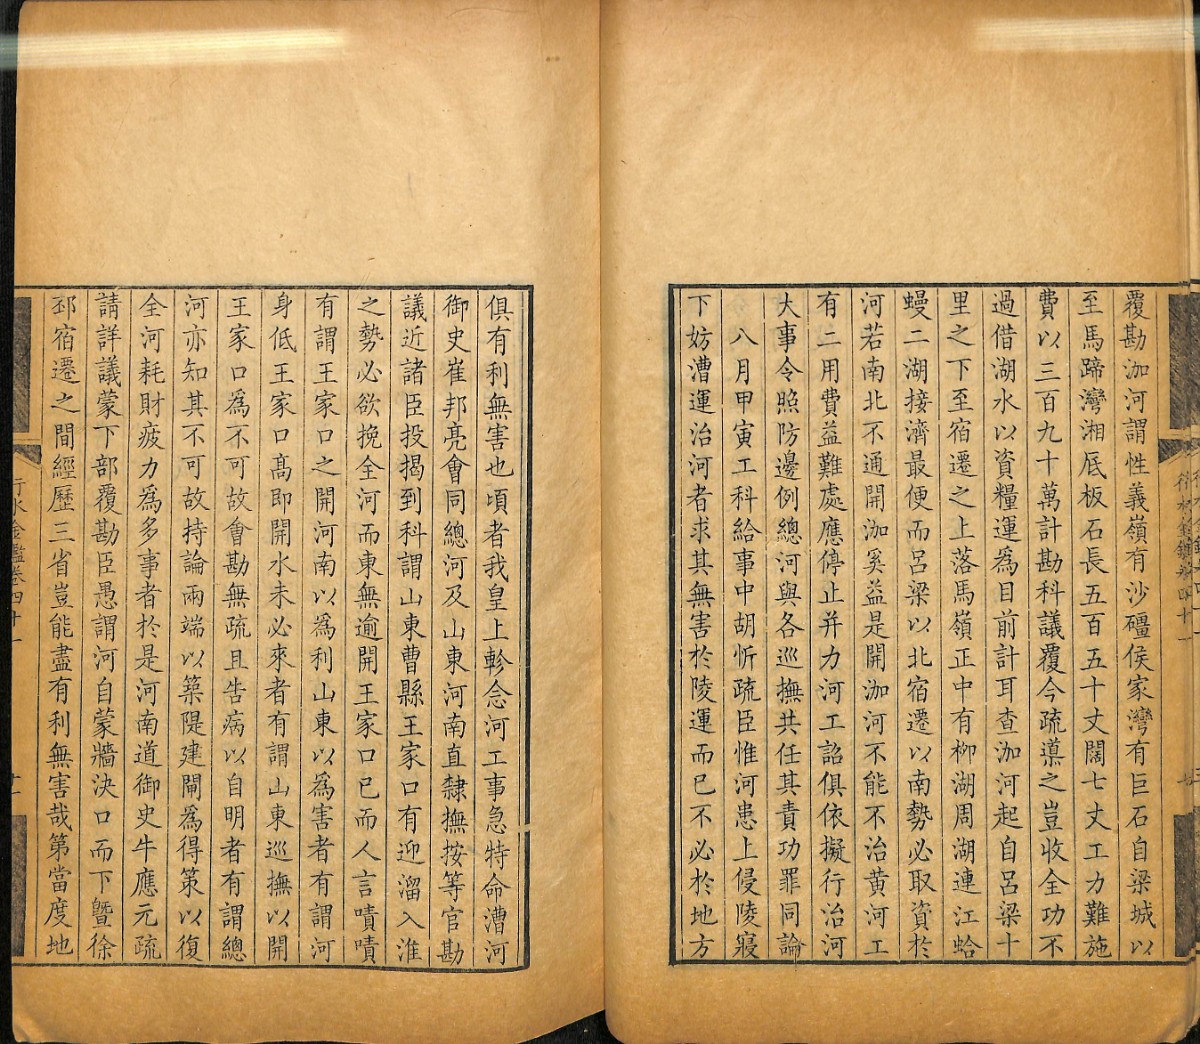 覆勘泇河謂性義嶺有沙礓侯家灣有巨石自梁城以
至馬蹄灣湘底板石長五百五十丈闊七丈工力難施
費以三百九十萬計勘科議覆今疏導之豈收全功不
過借湖水以資糧運爲目前計耳查泇河起自呂梁十
里之下至宿遷之上落馬嶺正中有柳湖周湖連江蛤
蟃二湖接濟最便而呂梁以北宿遷以南勢必取資於
河若南北不通開泇奚益是開泇河不能不治黄河工
有二用費益難處應停止并力河工詔俱依擬行治河
大事令照防邊例總河與各巡撫共任其責功罪同論
八月甲寅工科給事中胡忻疏臣惟河患上侵陵寢
下妨漕運治河者求其無害於陵運而已不必於地方
俱有利無害也頃者我皇上軫念河工事急特命漕河
御史崔邦亮會同總河及山東河南直隸撫按等官勘
議近諸臣投揭到科謂山東曹縣王家口有迎溜入淮
之勢必欲挽全河而東無逾開王家口已而人言嘖嘖
有謂王家口之開河南以爲利山東以爲害者有謂河
身低王家口高即開水未必來者有謂山東巡撫以開
王家口爲不可故會勘無疏且告病以自明者有謂總
河亦知其不可故持論兩端以築隄建閘爲得策以復
全河耗財疲力爲多事者於是河南道御史牛應元疏
請詳議蒙下部覆勘臣愚謂河自蒙牆決口而下曁徐
邳宿遷之間經歷三省豈能盡有利無害哉第當度地
行水金鑑卷四十一